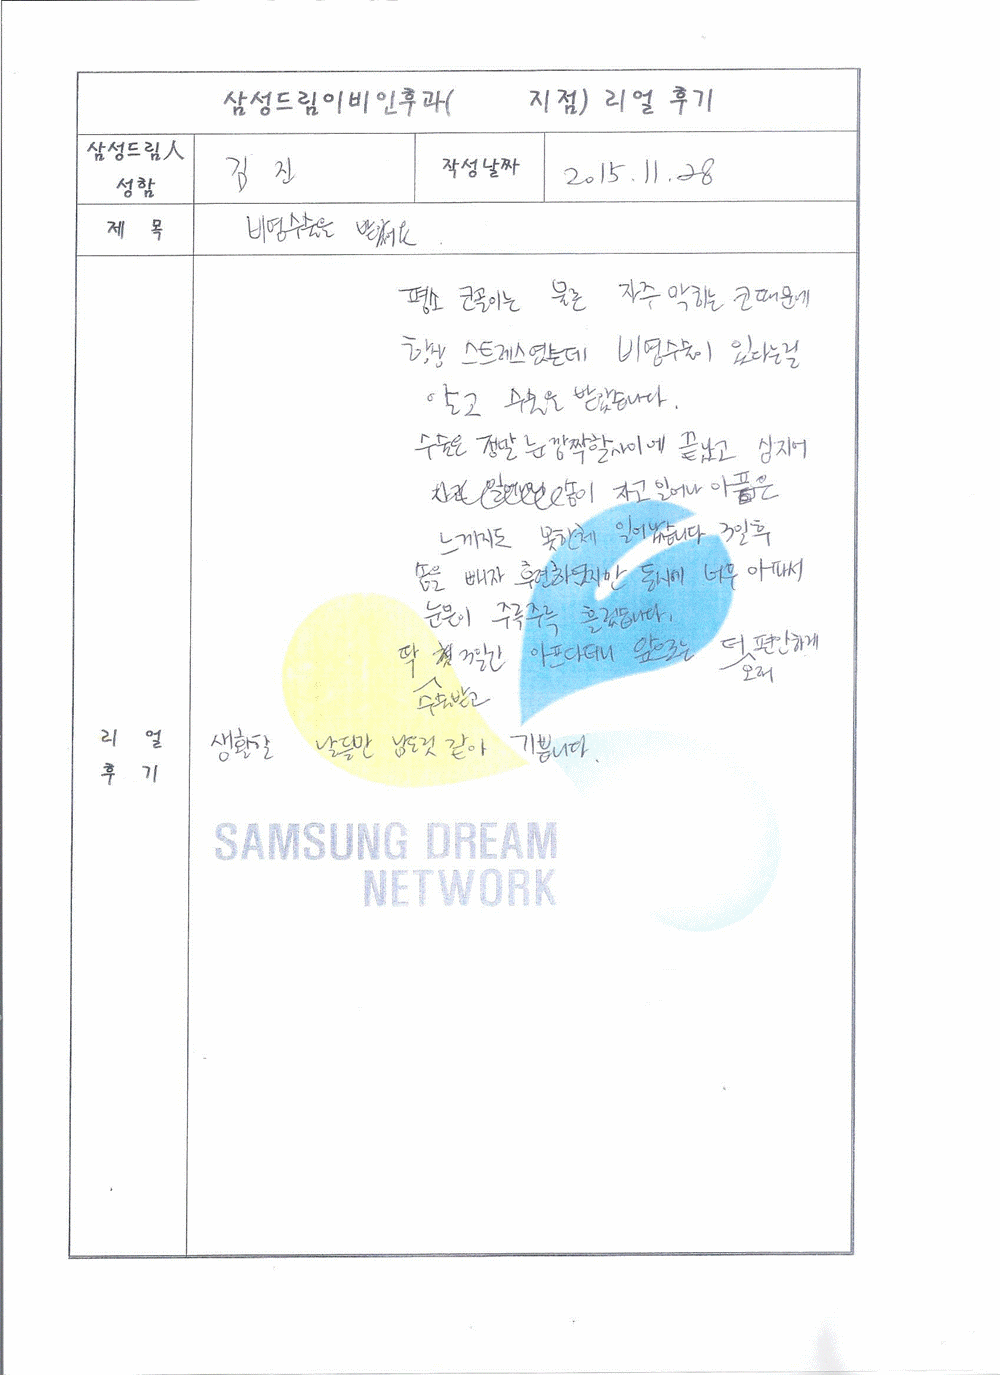 삼성드림이비인후과( 지점) 리얼 후기
삼성드림人
성함
김 진
작성날짜
2015.11.28
제 목
비염수술을 받았어요.
평소 코골이는 물론 자주 막히는 코때문에
항상 스트레스였는데 비염수술이 있다는걸
알고 수술을 받았습니다.
수술은 정말 눈깜짝할사이에 끝났고 심지어
솜이 자고 일어나 아픔은
느끼지도 못한체 일어났습니다 3일후
솜을 빼자 후련하였지만 동시에 너무 아파서
눈물이 주륵주륵 흘렀습니다.
딱 3일간 아프다더니 앞으로는 더 편안하게
수술받고
오래
리 얼
후 기
생활할 날들만 남은것 같아 기쁩니다.
SAMSUNG DREAM
NETWORK